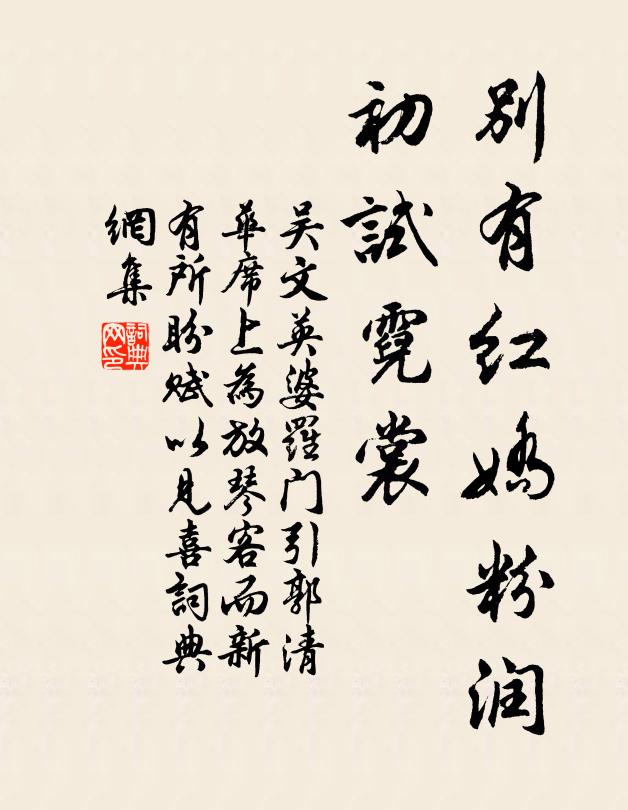 别有红娇粉润
初試霓裳
吴文英婆羅门引郭清
華席上為放琴客而新
有所盼赋以見喜詞典
網集
詞典
网印